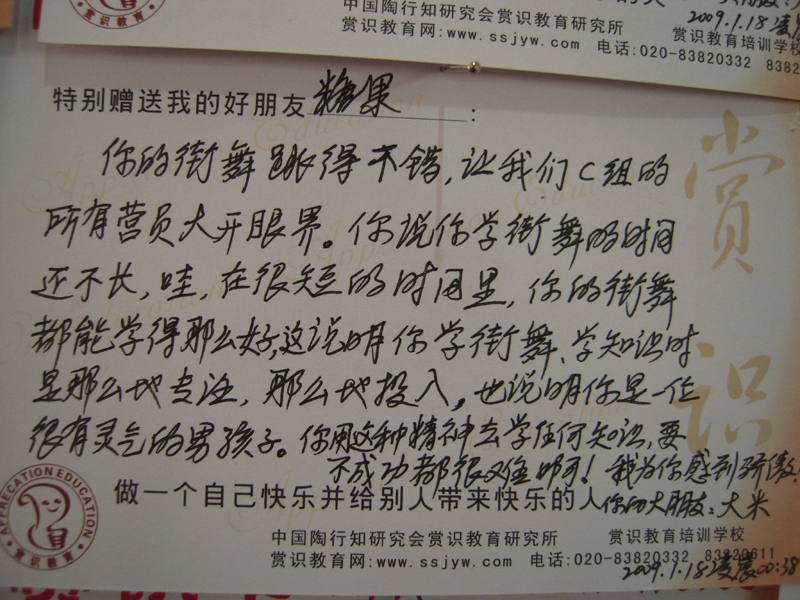 中国陶行知研究会赏识教育研究所 赏识教育培训学校
2009.1.18凌晨
赏识教育网:www.ssjyw.com 电话:020-83820332 8382
特别赠送我的好朋友糖果:
你的街舞跳得不错,让我们C组的
所有营员大开眼界。你说你学街舞的时间
还不长,哇,在很短的时间里,你的街舞
都能学得那么好,这说明你学街舞、学知识时
是那么地专注,那么地投入。也说明你是一位
很有灵气的男孩子。你用这种精神去学任何知识,要
不成功都很难啊!我为你感到骄傲!
做一个自己快乐并给别人带来快乐的人
你的大朋友:大米
中国陶行知研究会赏识教育研究所 赏识教育培训学校
赏识教育网:www.ssjyw.com 电话:020-83820332 83820611
2009.1.18凌晨00:38
赏识
APPRECATION EDUCATION
赏识教育